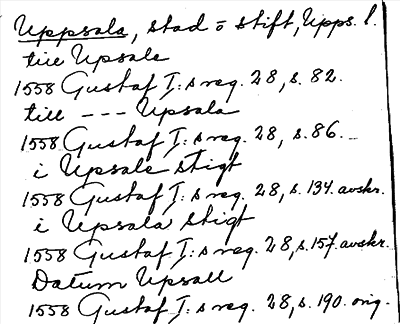 Uppsala, stad o stift, Upps. l.
till Upsale
1558 Gustaf I:s reg. 28, s. 82.
till --- Upsala
1558 Gustaf I:s reg. 28, s. 86.
i Upsale stigt
1558 Gustaf I:s reg. 28, s. 134. avskr.
i Upsala stigt
1558 Gustaf I:s reg. 28, s. 157. avskr.
Datum Upsall
1558 Gustaf I:s reg. 28, s. 190. orig.